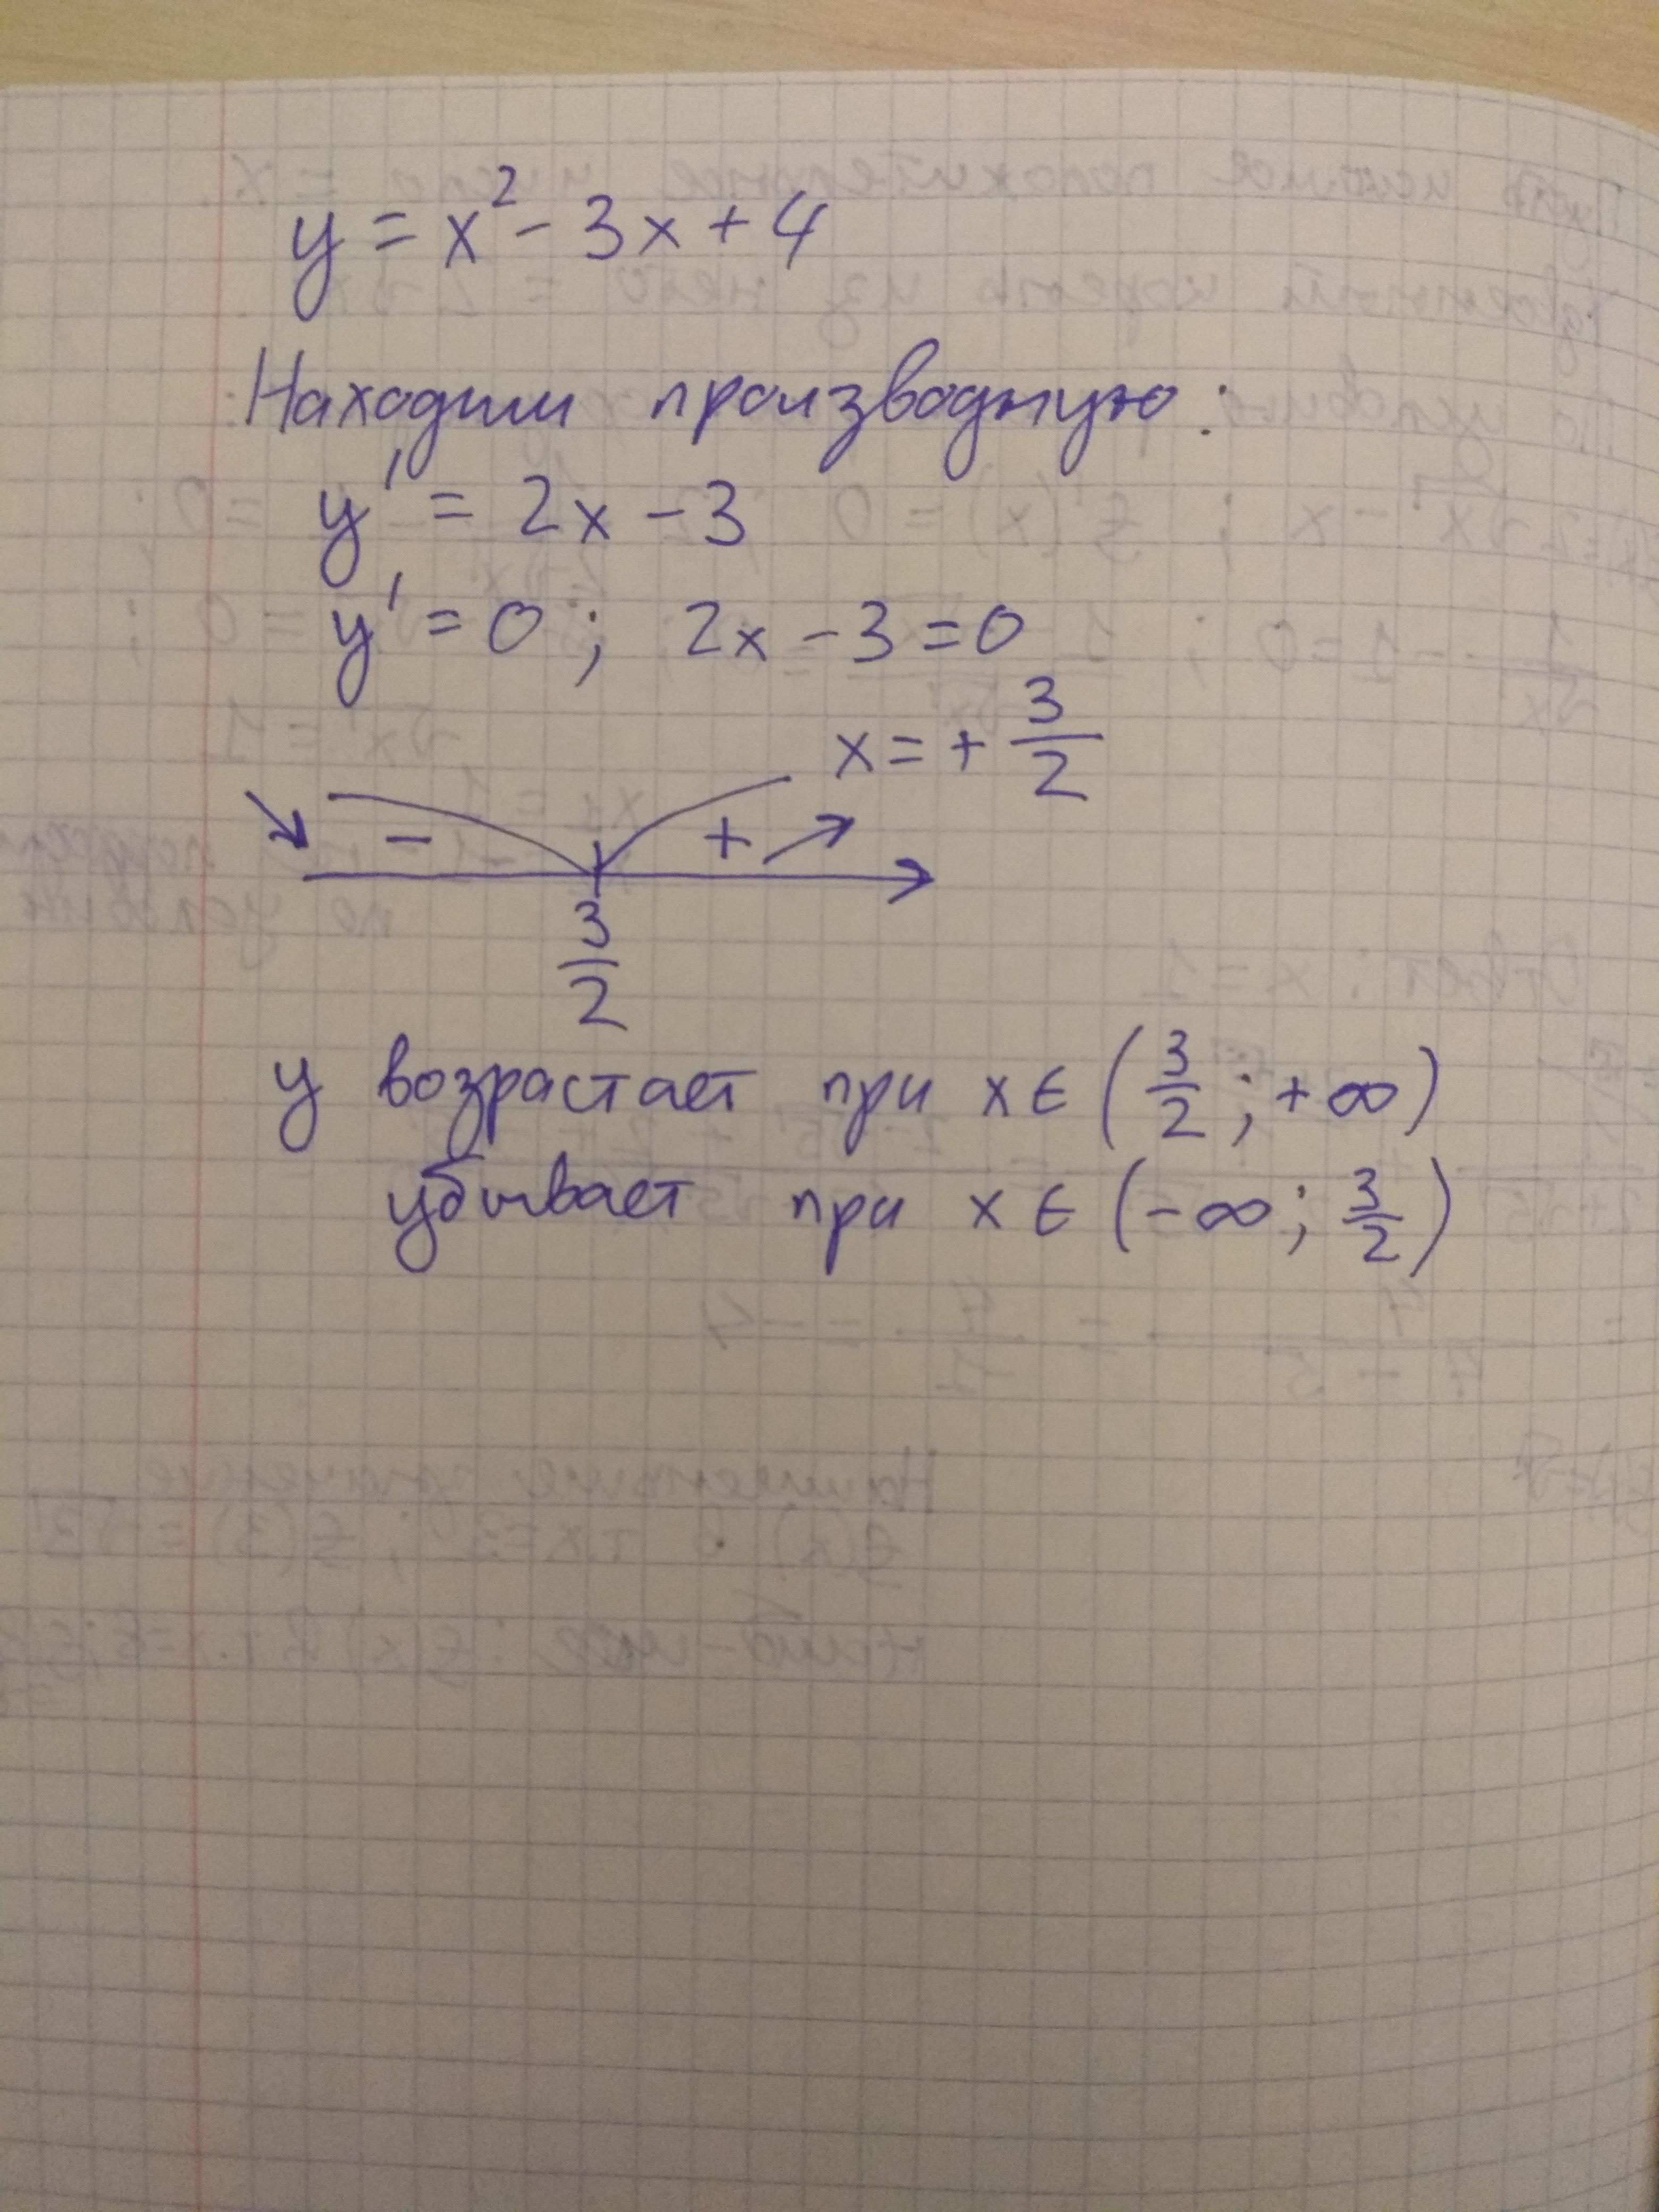 y = x² - 3x + 4
Находим производную:
y' = 2x - 3
y' = 0 ; 2x - 3 = 0
x = + 3/2
- +
3/2
y возрастает при x ∈ (3/2 ; + ∞)
убывает при x ∈ (- ∞ ; 3/2)